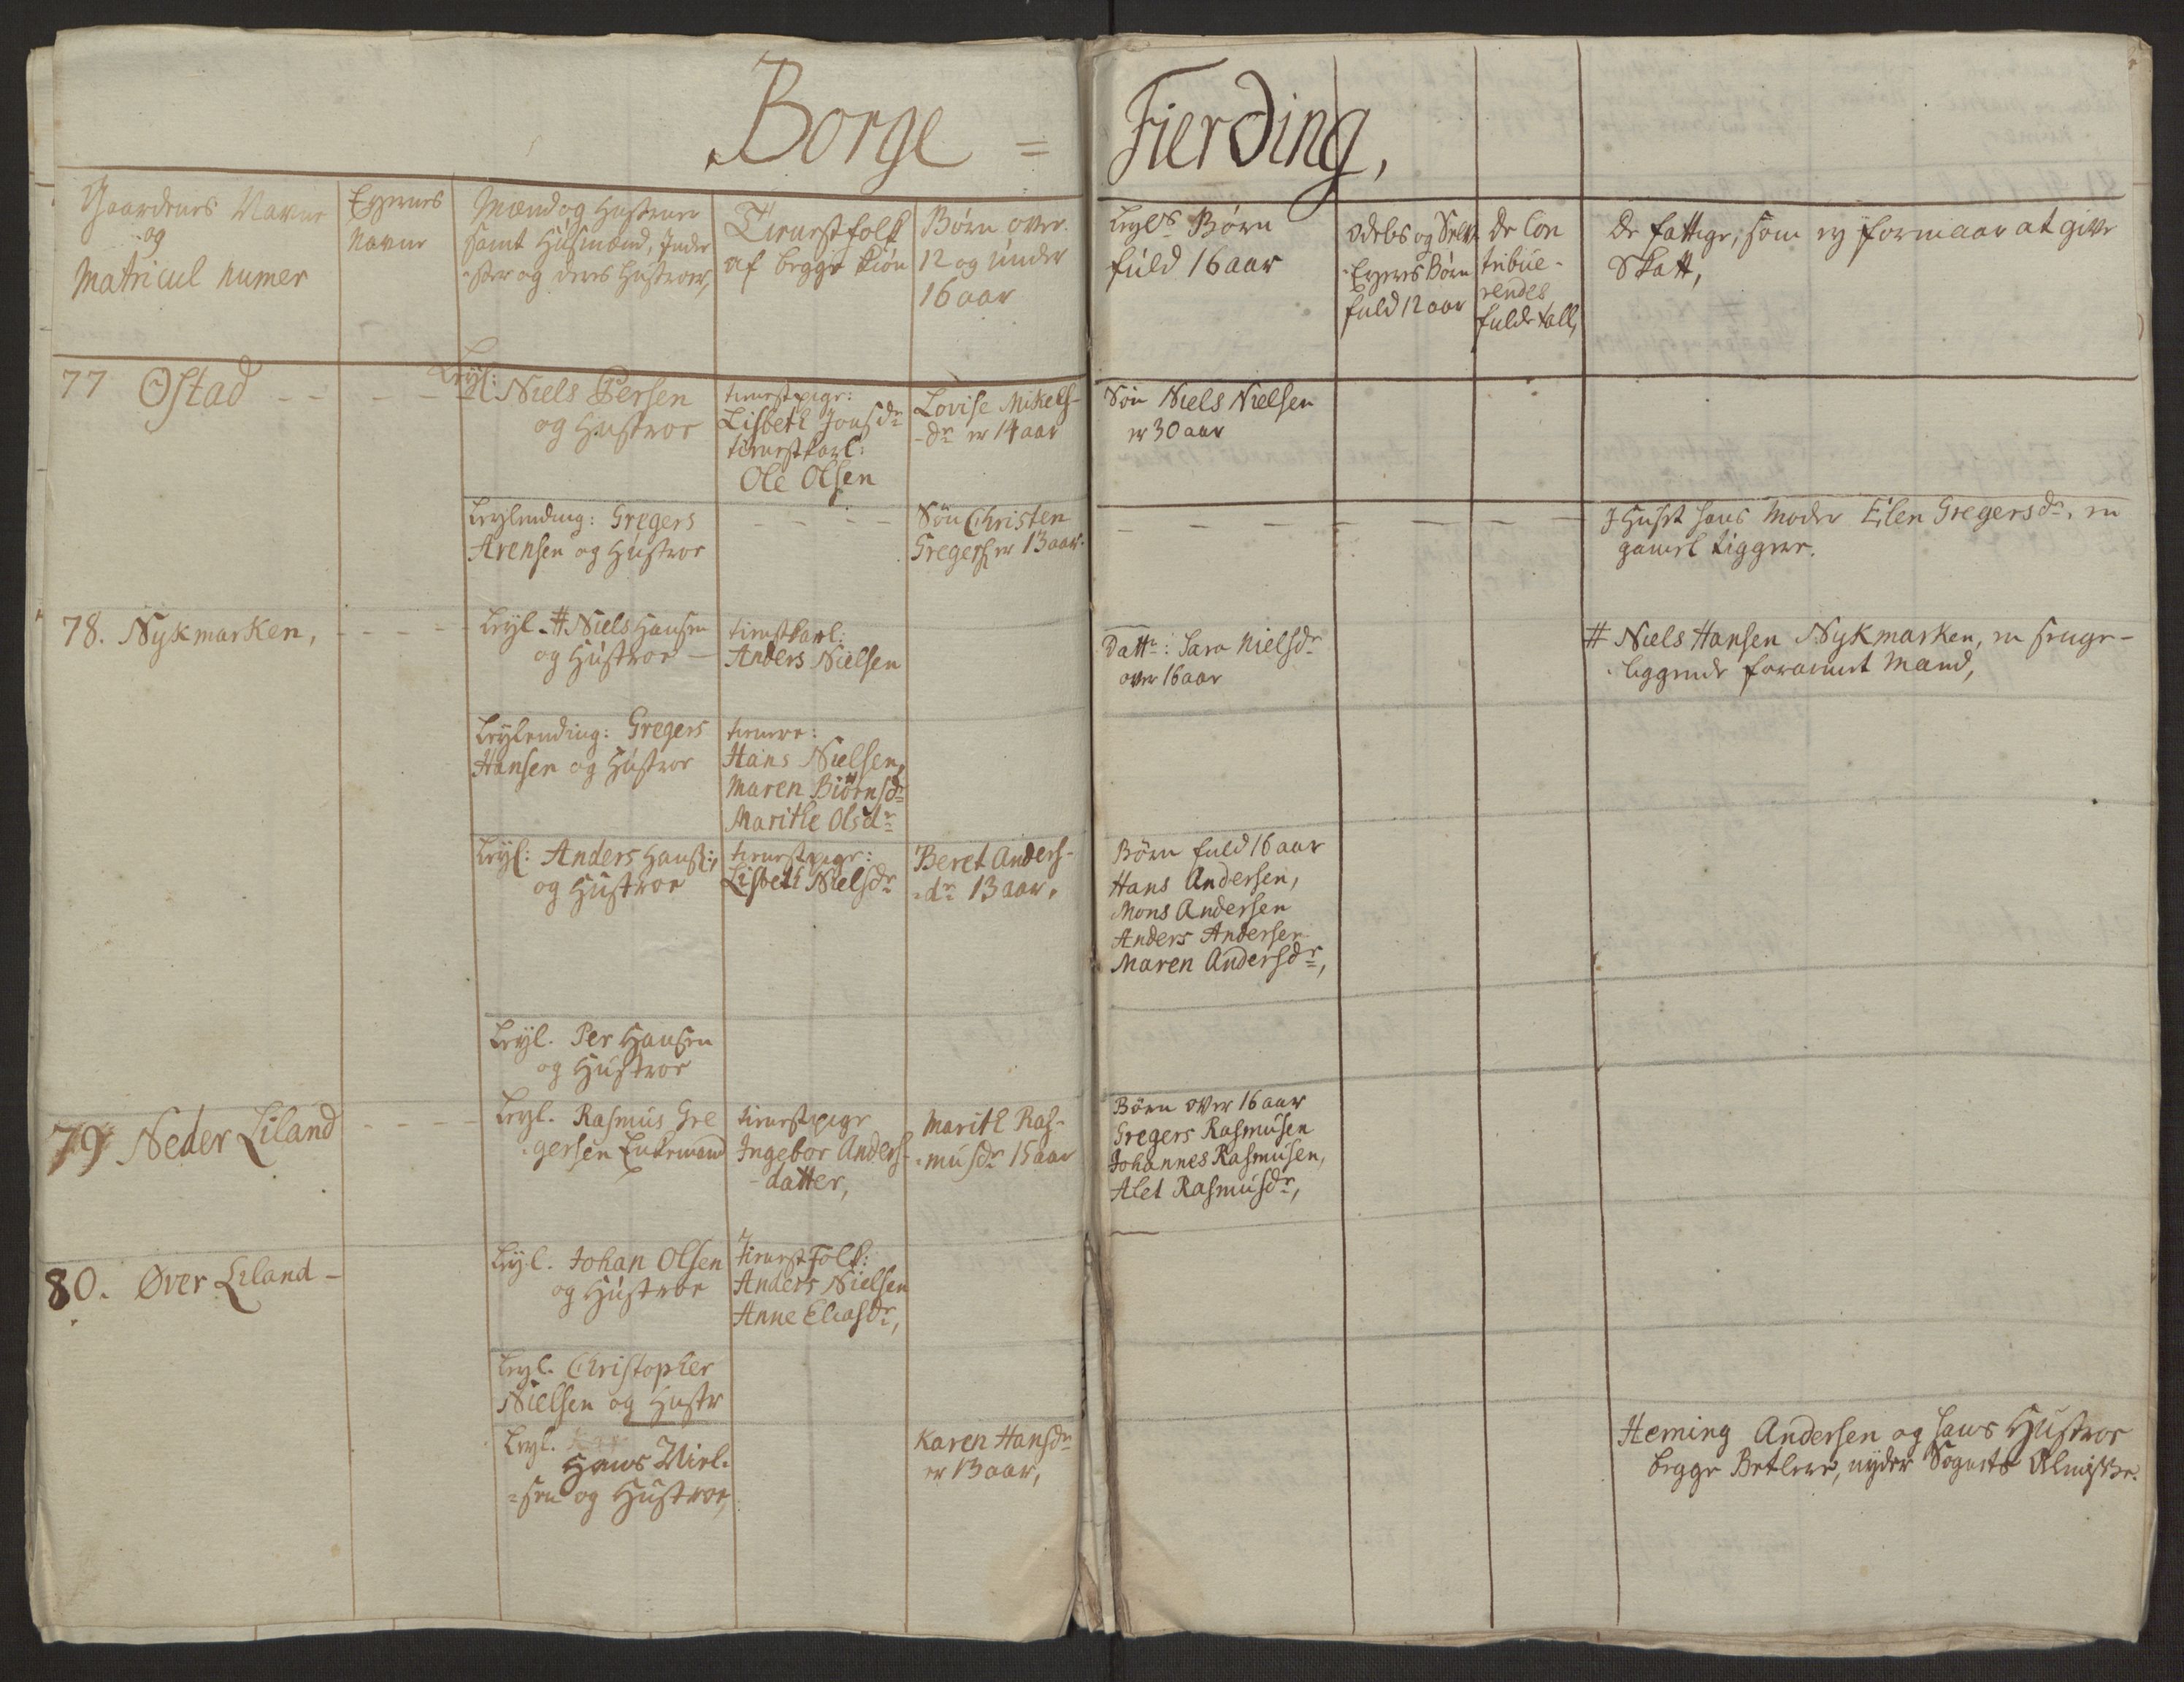 Borge = Fierding,
Gaardenes Navne
og
Matricul numer
Eyernes
Navne
Mænd og Hustruer
samt Huusmænd, Inder
ster og deres Hustroer,
Tienestfolk
af begge Kiøn
Børn over
12 og under
16 aar
Leyl:s Børn
fuld 16 aar
Odels og Selv
Eyeres Børn
fuld 12 aar
De Con
tribue-
rendes
fulde tall,
De fattige, som ey formaar at give
Skatt,
77 Østad
Leyl: Niels Persen
og Hustroe
tienestpige:
Lisbeth Jonsdr
tienestkarl:
Ole Olsen
Lovise Mikels-
dr er 14 aar
Søn Niels Nielsen
er 30 aar
Leylending: Gregers
Arensen og Hustroe
Søn Christen
Gregers: er 13 aar.
J Huset hans Moder Eilen Gregersdr, en
gamel Ligger.
78. Nykmarken,
Leyl. # Niels Hansen
og Hustroe
tienestkarl:
Anders Nielsen
Dattr: Sara Nielsdr
over 16 aar
# Niels Hansen Nykmarken, en senge-
liggende forarmet Mand,
Leylending: Gregers
Hansen og Hustroe
tienere:
Hans Nielsen,
Maren Biörnsdr
Marithe Olsdr
Leyl: Anders Hans:
og Hustroe
tienestpige:
Lisbeth Nielsdr
Beret Anders-
dr 13 aar.
Börn fuld 16 aar
Hans Andersen,
Mons Andersen
Anders Andersen
Maren Andersdr,
Leyl. Per Hansen
og Hustroe
79 Neder Liland
Leyl. Rasmus Gre
gersen Enkemand
tienestpige
Ingebor Anders-
datter,
Marith Ras-
musdr 15 aar
Börn over 16 aar
Gregers Rasmusen
Johannes Rasmusen,
Alet Rasmusdr,
80. Øver Liland
Leyl. Johan Olsen
og Hustroe
TienestFolk:
Anders Nielsen
Anne Eliasdr,
Leyl. Christopher
Nielsen og Hustr
Leyl.
Hans Niel-
sen og Hustroe,
Karen Hansdr
er 13 aar,
Heming Andersen og hans Hustroe
begge Betlere, nyder Sognets Almisse.